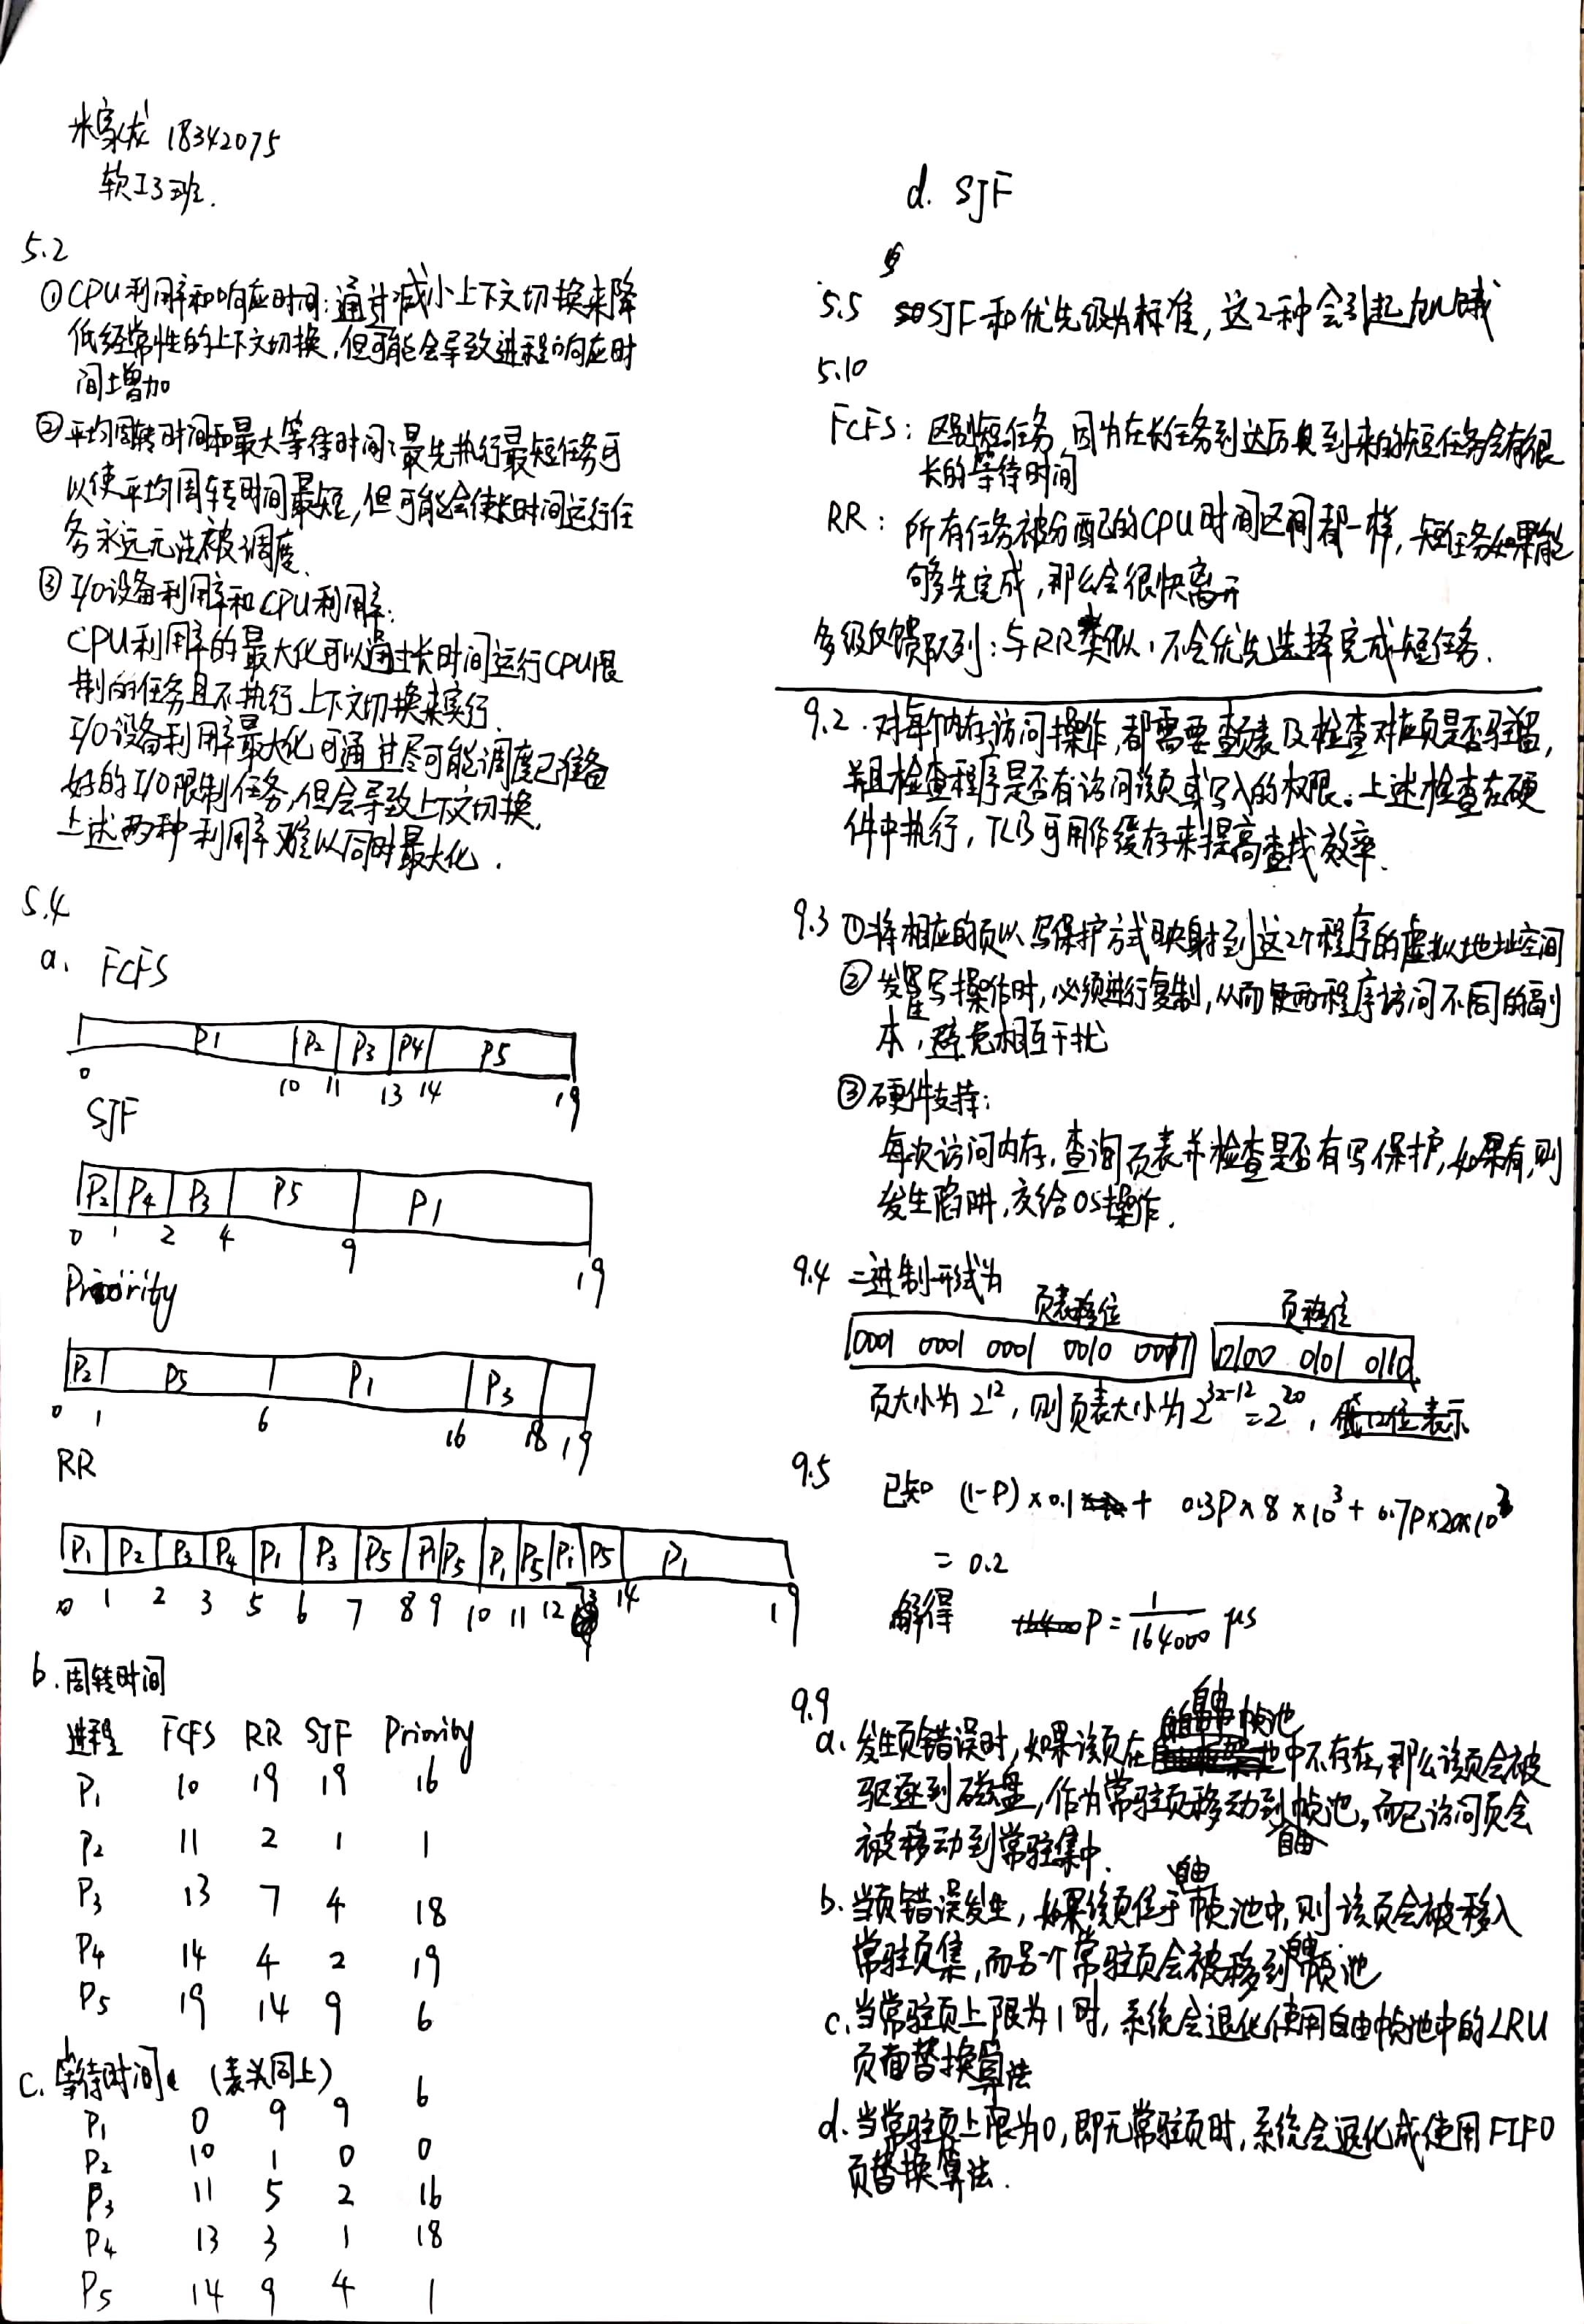 米家龙 18342075
软工3班.
5.2
①CPU利用率和响应时间:通过减小上下文切换来降
低经常性的上下文切换,但可能会导致进程响应时
间增加
②平均周转时间和最大等待时间:最先执行最短任务可
以使平均周转时间最短,但可能会使长时间运行任
务永远无法被调度.
③I/O设备利用率和CPU利用率:
CPU利用率的最大化可以通过长时间运行CPU限
制的任务且不执行上下文切换来实行.
I/O设备利用率最大化可通过尽可能调度已准备
好的I/O限制任务,但会导致上下文切换.
上述两种利用率难以同时最大化.
5.4
a. FCFS
P1 P2 P3 P4 P5
0 10 11 13 14 19
SJF
P2 P4 P3 P5 P1
0 1 2 4 9 19
Priority
P2 P5 P1 P3
0 1 6 16 18 19
RR
P1 P2 P3 P4 P1 P3 P5 P1 P5 P1 P5 P1 P5 P1
0 1 2 3 5 6 7 8 9 10 11 12 13 14 19
b.周转时间
进程 FCFS RR SJF Priority
P1 10 19 19 16
P2 11 2 1 1
P3 13 7 4 18
P4 14 4 2 19
P5 19 14 9 6
c.等待时间 (表头同上)
P1 0 9 9 6
P2 10 1 0 0
P3 11 5 2 16
P4 13 3 1 18
P5 14 9 4 1
d. SJF
5.5 SJF和优先级为标准,这2种会引起饥饿
5.10
FCFS: 区别短任务,因为在长任务到达后来到来的短任务会有很
长的等待时间
RR: 所有任务被分配的CPU时间区间都一样,短任务如果能
够先完成,那么会很快离开
多级反馈队列:与RR类似,不会优先选择完成短任务.
9.2.对每个内存访问操作,都需要查页表及检查对应页是否驻留,
并且检查程序是否有访问该页或写入的权限。上述检查在硬
件中执行,TLB可用作缓存来提高查找效率.
9.3 ①将相应的页以写保护方式映射到这2个程序的虚拟地址空间
②发生写操作时,必须进行复制,从而使两程序访问不同的副
本,避免相互干扰
③硬件支持:
每次访问内存,查询页表并检查是否有写保护,如果有,则
发生陷阱,交给OS操作.
9.4 二进制形式为
页表移位 页移位
0001 0001 0001 0010 0011 0100 0101 0110
页大小为2^12,则页表大小为2^32-12=2^20,低12位表示
9.5 已知 (1-P)×0.1 + 0.3P×8×10^3+0.7P×20×10^3
= 0.2
解得 P=1/164000 μs
9.9
a.发生页错误时,如果该页在自由帧池中不存在,那么该页会被
驱逐到磁盘,作为常驻页移动到自由帧池,而已访问页会
被移动到常驻集中.
b.当页错误发生,如果该页位于自由帧池中,则该页会被移入
常驻页集,而另一个常驻页会被移到自由帧池
c.当常驻页上限为1时,系统会退化使用自由帧池中的LRU
页面替换算法
d.当常驻页上限为0,即无常驻页时,系统会退化成使用FIFO
页替换算法.